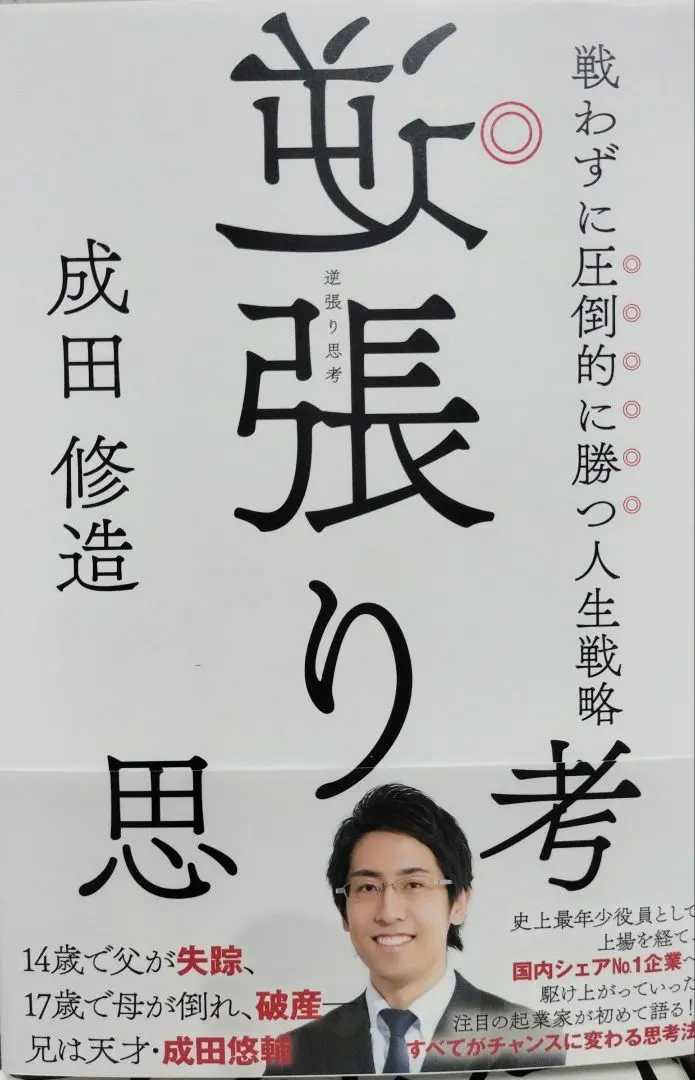 戦わずに圧倒的に勝つ人生戦略
逆張り思考
逆張り思考
成田修造
14歳で父が失踪、
17歳で母が倒れ、破産―
兄は天才・成田悠輔
史上最年少役員として
上場を経て、
国内シェアNo.1企業へ
駆け上がっていった
注目の起業家が初めて語る!
すべてがチャンスに変わる思考法